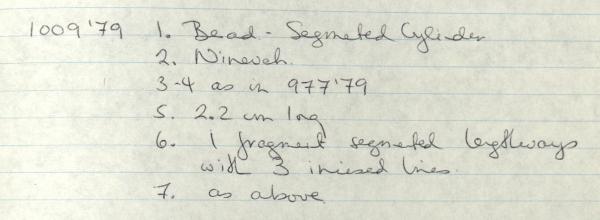 1009'79 1. Bead - Segmeted Cylinder
2. Nineveh.
3-4 as in 977'79
5. 2.2 cm long
6. 1 fragment segmeted lengthways
with 3 incised lines.
7. as above